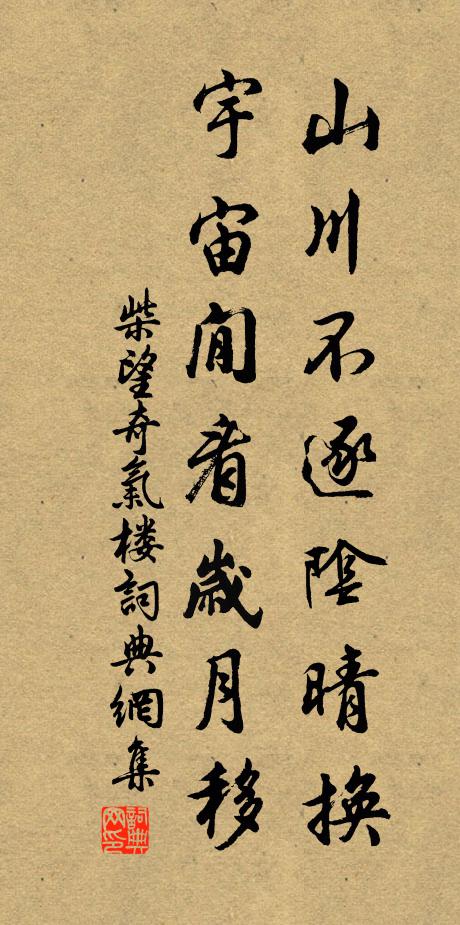 山川不逐陰晴換
宇宙閒看歲月移
柴望奇氣樓詞典網集
詞典
网印